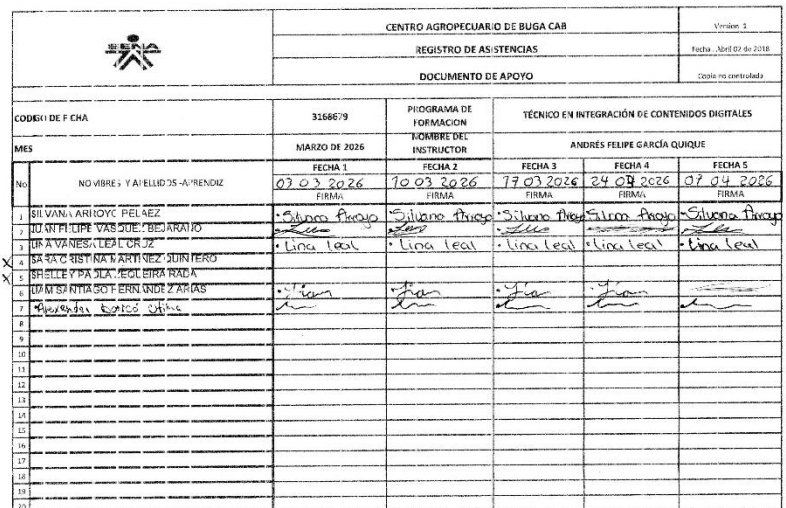 SENA
CENTRO AGROPECUARIO DE BUGA CAB
Version 1
REGISTRO DE ASISTENCIAS
Fecha: Abril 02 de 2018
DOCUMENTO DE APOYO
Copia no controlada
CODIGO DE FICHA 3168679 PROGRAMA DE FORMACION TÉCNICO EN INTEGRACIÓN DE CONTENIDOS DIGITALES
MES MARZO DE 2026 NOMBRE DEL INSTRUCTOR ANDRÉS FELIPE GARCÍA QUIQUE
No NOMBRES Y APELLIDOS -APRENDIZ FECHA 1 FECHA 2 FECHA 3 FECHA 4 FECHA 5
03 03 2026 10 03 2026 17 03 2026 24 03 2026 07 04 2026
FIRMA FIRMA FIRMA FIRMA FIRMA
1 SILVANA ARROYO PELAEZ Silvana Arroyo Silvana Arroyo Silvana Arroyo Silvana Arroyo Silvana Arroyo
2 JUAN FELIPE VASQUEZ BEJARANO
3 LINA VANESA LEAL CRUZ Lina leal Lina leal Lina leal Lina leal Lina leal
X 4 SARA CRISTINA MARTINEZ QUINTERO
X 5 SHELLEY PAOLA REGUEIRA RADA
6 LIAM SANTIAGO FERNANDEZ ARIAS
7
8
9
10
11
12
13
14
15
16
17
18
19
20